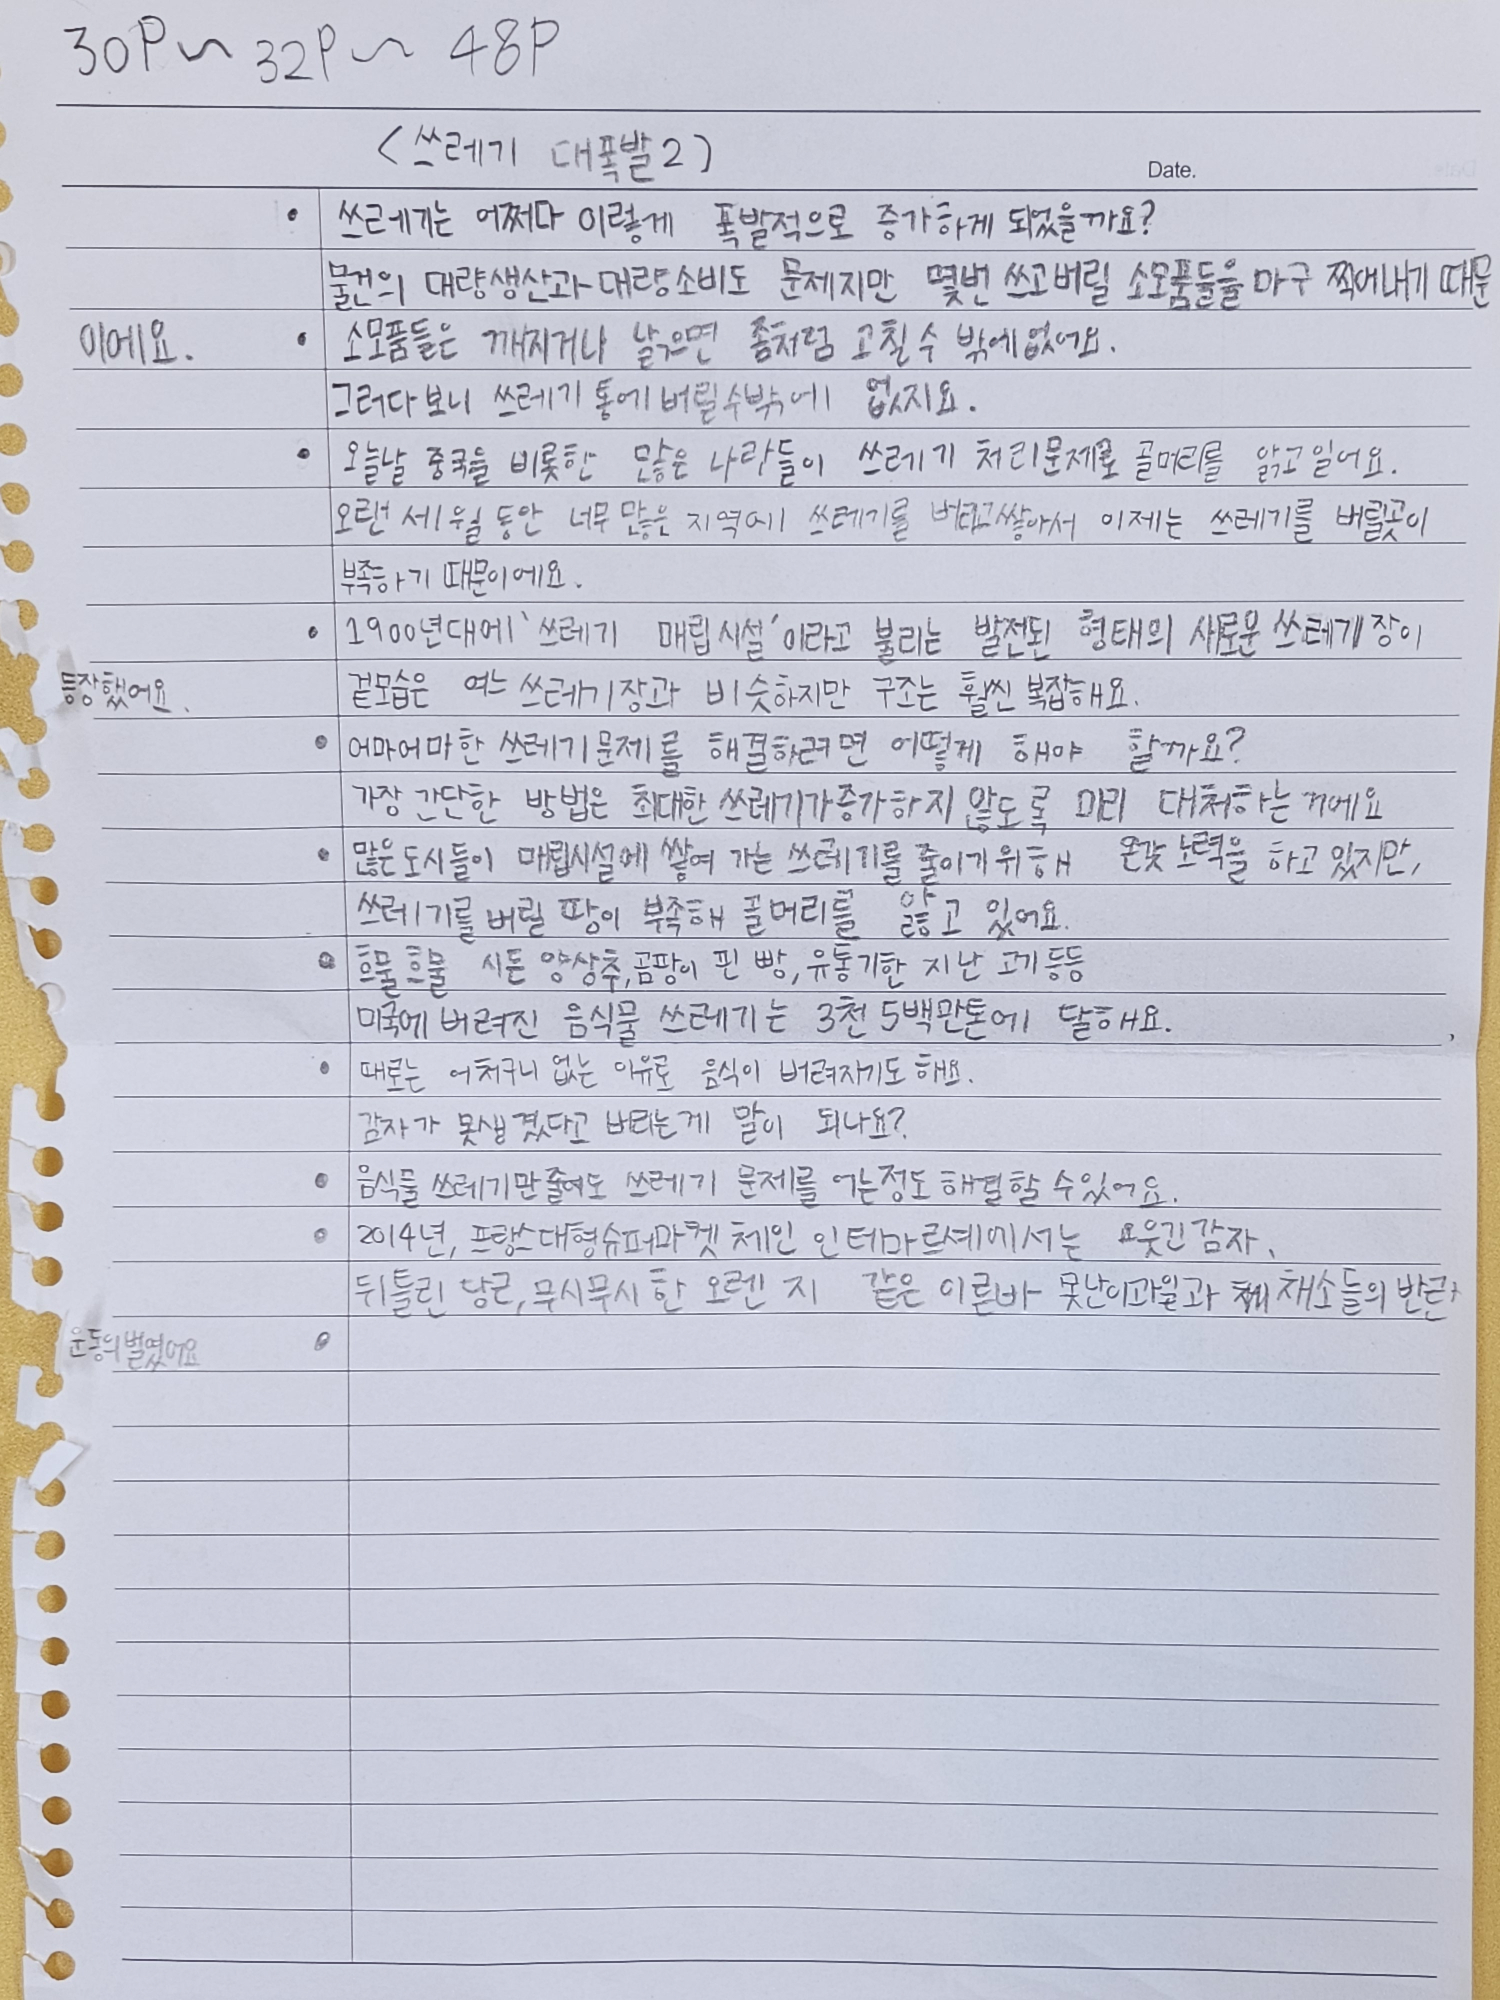 30P~ 32P~ 48P
<쓰레기 대폭발2>
Date.
• 쓰레기는 어쩌다 이렇게 폭발적으로 증가하게 되었을까요?
물건의 대량생산과 대량소비도 문제지만 몇번 쓰고버릴 소모품들을 마구 찍에내기 때문
이에요. • 소모품들은 깨지거나 낡으면 좀처럼 고칠 수 밖에없어요.
그러다보니 쓰레기통에 버릴수밖에 없지요.
• 오늘날 중국을 비롯한 많은 나라들이 쓰레기 처리문제로 골머리를 앍고일어요.
오랜 세월 동안 너무 많은 지역에 쓰레기를 버리고쌓아서 이제는 쓰레기를 버릴곳이
부족하기 때문이에요.
• 1900년대에 '쓰레기 매립시설'이라고 불리는 발전된 형태의 새로운 쓰레기장이
등장했어요. 겉모습은 여느 쓰레기장과 비슷하지만 구조는 훨씬 복잡해요.
• 어마어마한 쓰레기문제를 해결하려면 어떻게 해야 할까요?
가장 간단한 방법은 최대한 쓰레기가증가하지 않도록 미리 대처하는거에요
• 많은도시들이 매립시설에 쌓여 가는 쓰레기를 줄이기위해 온갖 노력을 하고 있지만,
쓰레기를 버릴 땅이 부족해 골머리를 앓고 있어요.
• 흐물흐물 시든 양상추,곰팡이 핀 빵,유통기한 지난 고기등등
미국에 버려진 음식물 쓰레기는 3천 5백만톤에 달해요.
• 때로는 어처구니 없는 이유로 음식이 버려지기도 해요.
감자가 못생겼다고 버리는게 말이 되나요?
• 음식물 쓰레기만줄여도 쓰레기 문제를 어는정도 해결할 수있어요.
• 2014년, 프랑스대형슈퍼마켓 체인 인테마르셰에서는 요웃긴감자,
뒤틀린 당근,무시무시한 오렌지 같은 이른바 못난이과일과 채소들의 반란
운동의벌였어요 •